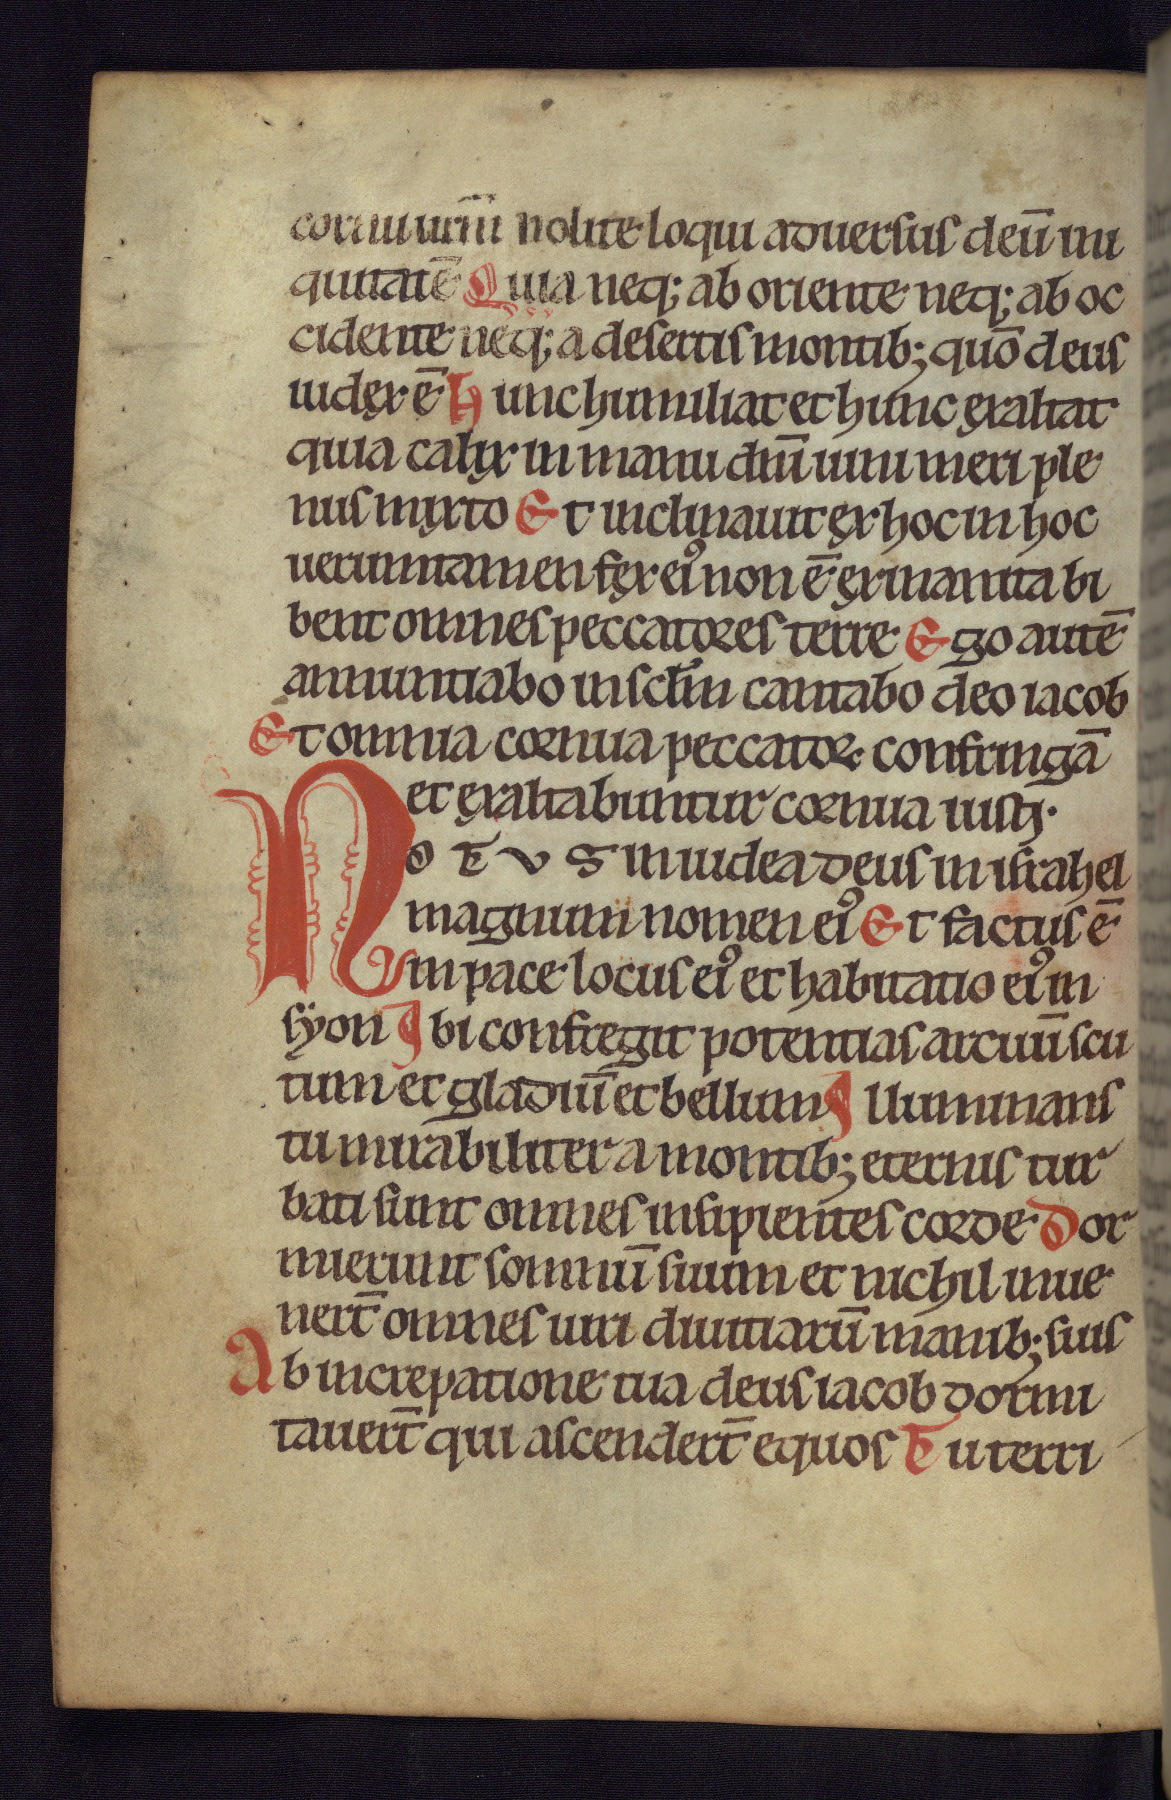 cornu ur̄m nolite loqui aduersus deū ini
quitatē Quia neq; ab oriente neq; ab oc
cidente neq; a desertis montib; quō deus
iudex ē hunc humiliat et hunc exaltat
quia calix in manu dn̄i uini meri ple
nus mixto Et inclinauit ex hoc in hoc
ueruntamen fex eiꝰ non ē exinanita bi
bent omnes peccatores terre Ego autē
annuntiabo in sclm̄ cantabo deo iacob
Et omnia cornua peccatoꝝ confringā
et exaltabuntur cornua iusti.
NOTUS in iudea deus in israhel
magnum nomen eiꝰ Et factus ē
in pace locus eiꝰ et habitatio eiꝰ in
syon Ibi confregit potentias arcuū scu
tum et gladiū et bellum Illuminans
tu mirabiliter a montib; eternis tur
bati sunt omnes insipientes corde Dor
mierunt somnū suum et nichil inue
nert̄ omnes uiri diuitiarū manib; suis
Ab increpatione tua deus iacob dormi
tauert̄ qui ascendert̄ equos Tu terri